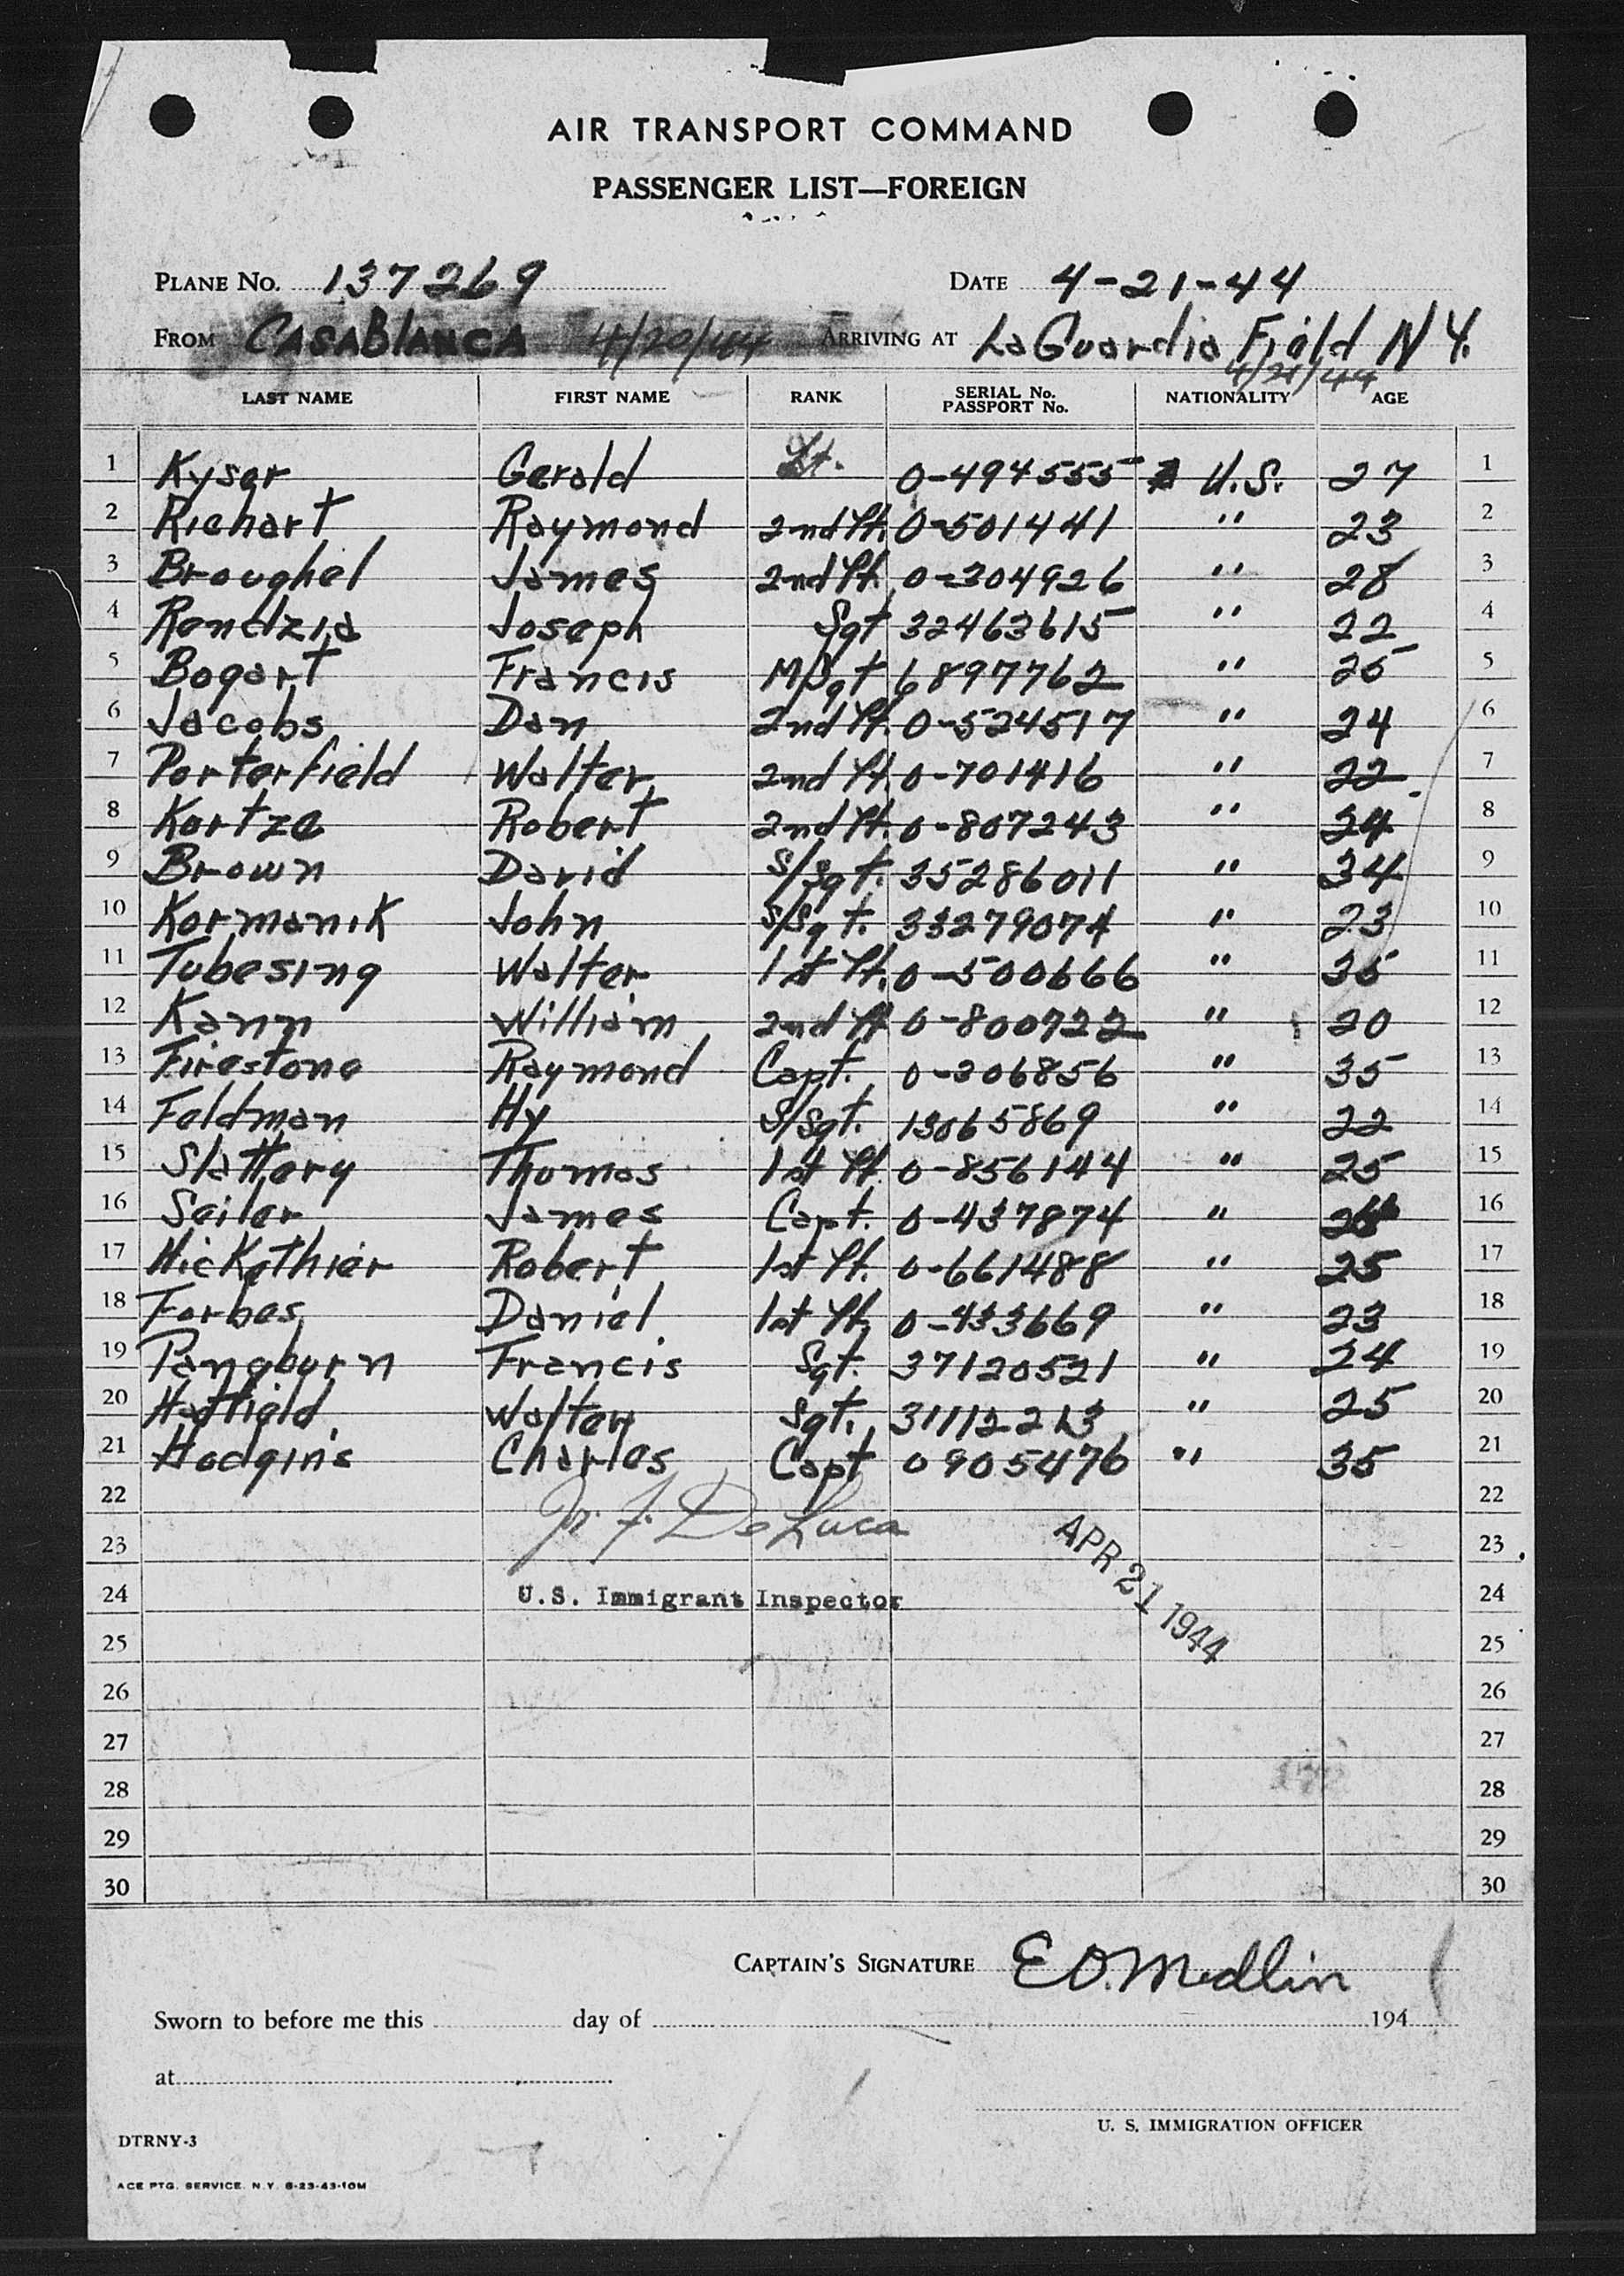 AIR TRANSPORT COMMAND
PASSENGER LIST—FOREIGN
PLANE No. 137269 DATE 4-21-44
FROM CASABLANCA 4/20/44 ARRIVING AT LaGuardia Field N Y.
4/21/44
LAST NAME FIRST NAME RANK SERIAL No. PASSPORT No. NATIONALITY AGE
1 Kyser Gerald Lt. 0-494555 U.S. 27 1
2 Richart Raymond 2nd Lt. 0-501441 " 23 2
3 Broughel James 2nd Lt. 0-304926 " 28 3
4 Rendzia Joseph Sgt 32463615 " 22 4
5 Bogart Francis M/Sgt 6897762 " 25 5
6 Jacobs Dan 2nd Lt. 0-524517 " 24 6
7 Porterfield Walter 2nd Lt. 0-701416 " 22 7
8 Kortze Robert 2nd Lt. 0-807243 " 24 8
9 Brown David S/Sgt. 35286011 " 34 9
10 Kormanik John S/Sgt. 33279074 " 23 10
11 Tubesing Walter 1st Lt. 0-500666 " 35 11
12 Kann William 2nd Lt 0-800722 " 20 12
13 Firestone Raymond Capt. 0-306856 " 35 13
14 Feldman Hy S/Sgt. 13065869 " 22 14
15 Slattery Thomas 1st Lt. 0-856144 " 25 15
16 Seiler James Capt. 0-437874 " 16
17 Hickethier Robert 1st Lt. 0-661488 " 25 17
18 Forbes Daniel 1st Lt. 0-433669 " 23 18
19 Pangburn Francis Sgt. 37120521 " 24 19
20 Hatfield Walter Sgt. 31112213 " 25 20
21 Hodgins Charles Capt 0905476 " 35 21
22 22
23 Jr. F. DeLuca 23
24 U.S. Immigrant Inspector 24
APR 21 1944
25 25
26 26
27 27
28 28
29 29
30 30
CAPTAIN'S SIGNATURE E O. Medlin
Sworn to before me this day of 194
at
U. S. IMMIGRATION OFFICER
DTRNY-3
ACE PTG. SERVICE. N.Y. 8-23-43-10M